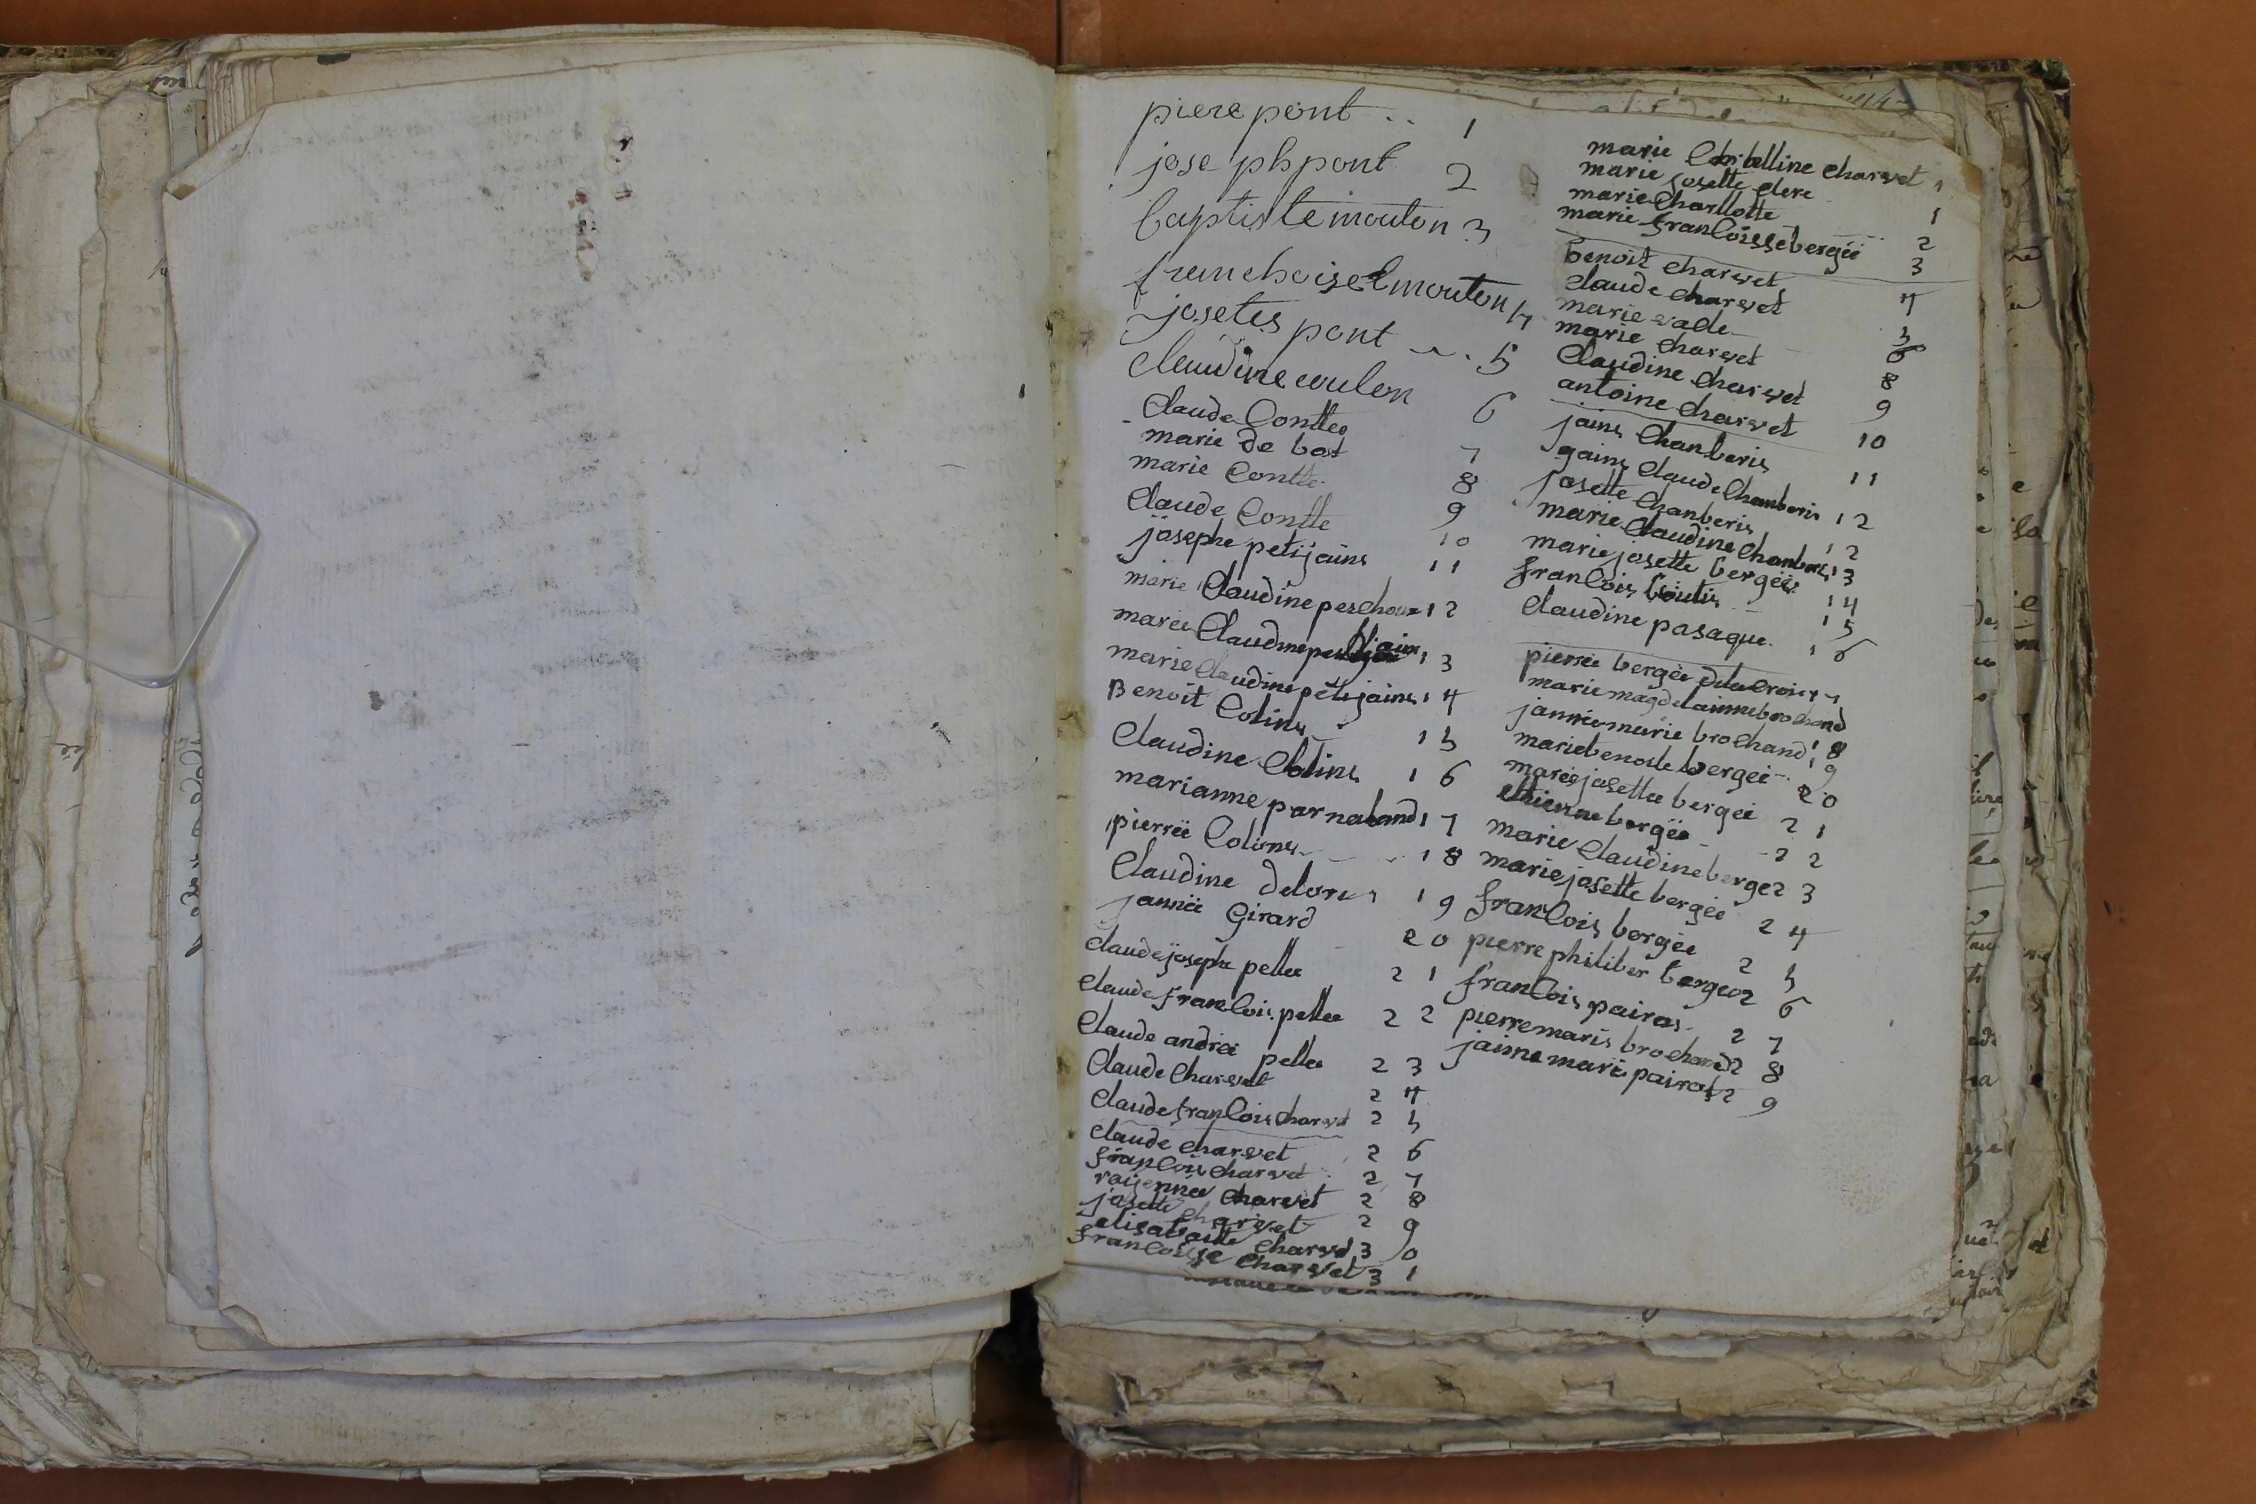 piere pont .. 1
jose ph pont 2
baptiste mouton 3
franchoise mouton 4
josetes pont 5
claudine coulon 6
Claude Contte
marie de bot 7
marie Contte 8
Claude Contte 9
josephe petijains 10
11
marie Claudine peschoux 12
marie Claudine petijains 13
marie Claudine petijains 14
Benoit Colins 15
Claudine Colins 16
marianne parnaland 17
pierreë Colins 18
Claudine delorus 19
jannée Girard 20
Claude josephe pellee 21
Claude franCois pellee 22
Claude andreé pellee 23
Claude Charvet 24
Claude franCois Charvet 25
Claude Charvet 26
franCois Charvet 27
Charvet 28
josette Charvet 29
elisabaitte Charvet 30
franCoisse Charvet 31
marie Charvet 1
marie josette Clere 1
marie Charllotte 2
marie franCoisse bergéé 3
benoit Charvet 4
Claude Charvet 5
marie vade 6
marie Charvet 8
Claudine Charvet 9
antoine Charvet 10
jains Chanberis 11
gains Claude Chamberis 12
josette Chanberis 12
marie Claudine Chanberis 13
marie josette bergéé 14
franCois 15
Claudine pasaque 16
pierreé bergée 17
marie magdelainne brochand 18
jannée marie brochand 19
marie benoite bergeé 20
marie josette bergeé 21
ettienne bergée 22
marie Claudine berge 23
marie josette bergeé 24
franCois bergée 25
pierre philiber bergee 26
franCois pairas 27
pierre maris brochand 28
jainne marie pairas 29